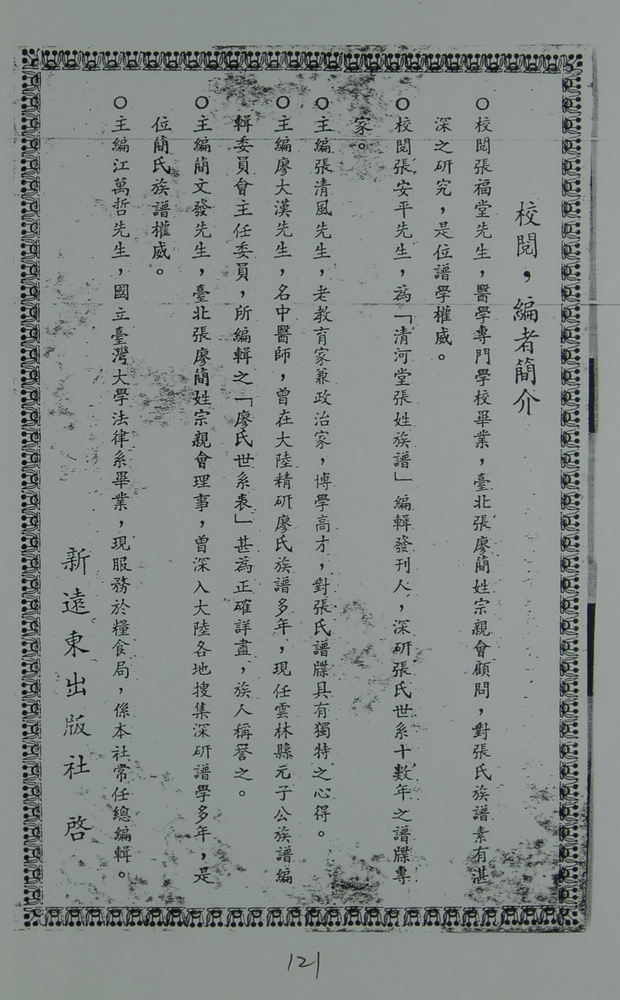 校閱,編者簡介
○校閱張福堂先生,醫學專門學校畢業,臺北張廖簡姓宗親會顧問,對張氏族譜素有湛
深之研究,是位譜學權威。
○校閱張安平先生,為「清河堂張姓族譜」編輯發刊人,深研張氏世系十數年之譜牒專
家。
○主編張清風先生,老教育家兼政治家,博學高才,對張氏譜牒具有獨特之心得。
○主編廖大漢先生,名中醫師,曾在大陸精研廖氏族譜多年,現任雲林縣元子公族譜編
輯委員會主任委員,所編輯之「廖氏世系表」甚為正確詳盡,族人稱譽之。
○主編簡文發先生,臺北張廖簡姓宗親會理事,曾深入大陸各地搜集深研譜學多年,是
位簡氏族譜權威。
○主編江萬哲先生,國立臺灣大學法律系畢業,現服務於糧食局,係本社常任總編輯。
新遠東出版社 啓
121